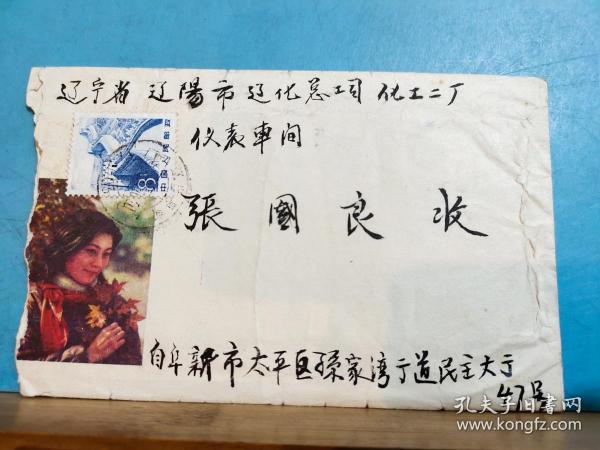 辽宁省 辽陽市 辽化总公司 化工二厂
仪表車间
張國良 收
自阜新市太平区孫家湾亍道民主大亍
47号
中国人民邮政
8
孔夫子旧书网
www.kongfz.com